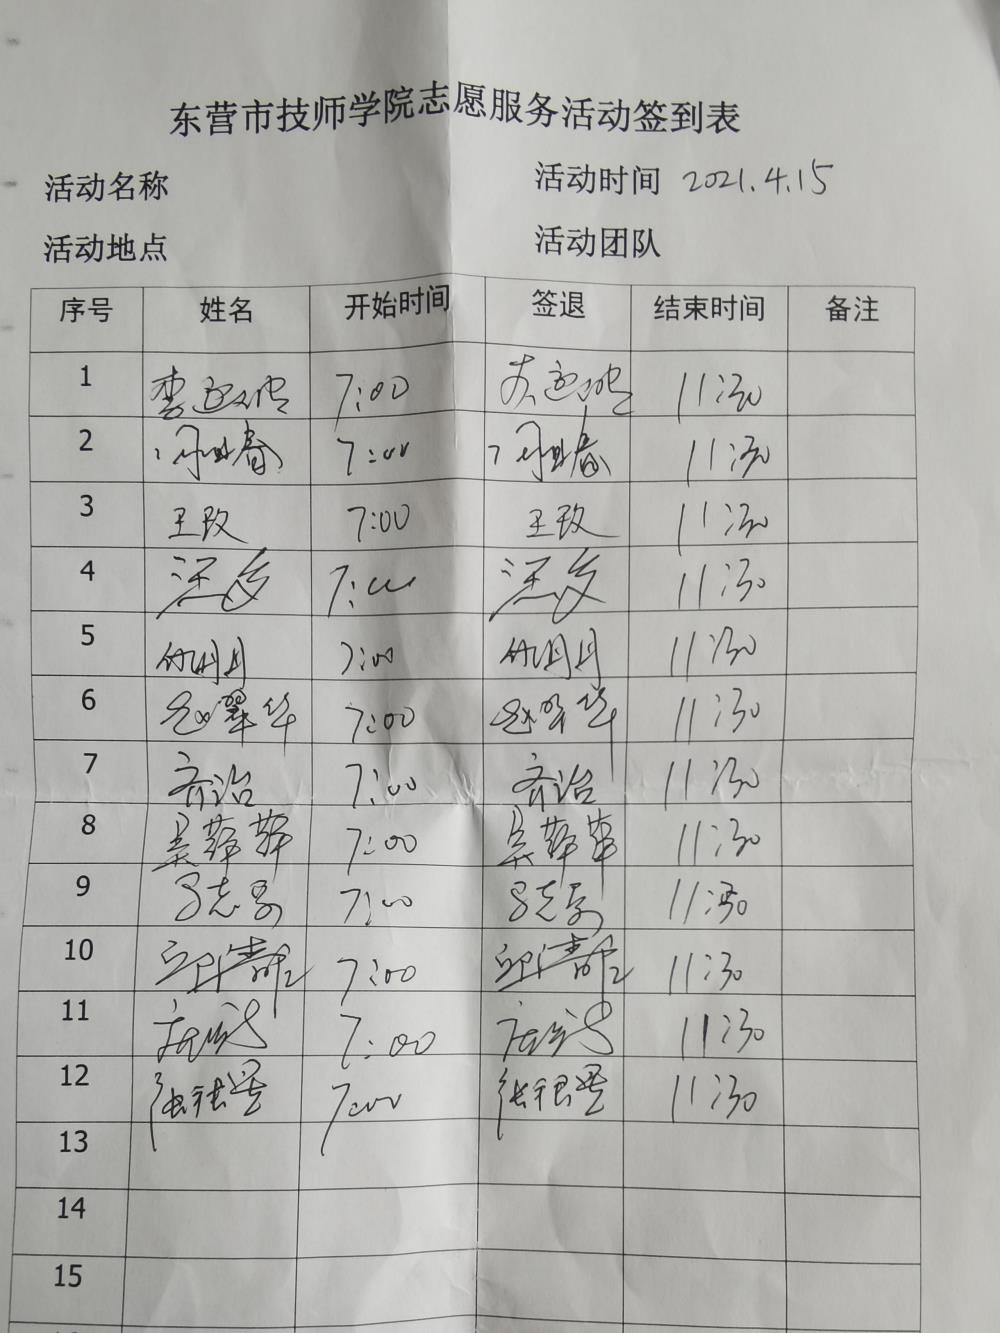 东营市技师学院志愿服务活动签到表
活动名称 活动时间 2021.4.15
活动地点 活动团队
序号 姓名 开始时间 签退 结束时间 备注
1 7:00 11:30
2 7:00 11:30
3 王玫 7:00 王玫 11:30
4 7:00 11:30
5 7:00 11:30
6 赵翠华 7:00 赵翠华 11:30
7 齐治 7:00 齐治 11:30
8 吴莉莉 7:00 吴莉莉 11:30
9 7:00 11:30
10 7:00 11:30
11 7:00 11:30
12 张银星 7:00 张银星 11:30
13
14
15